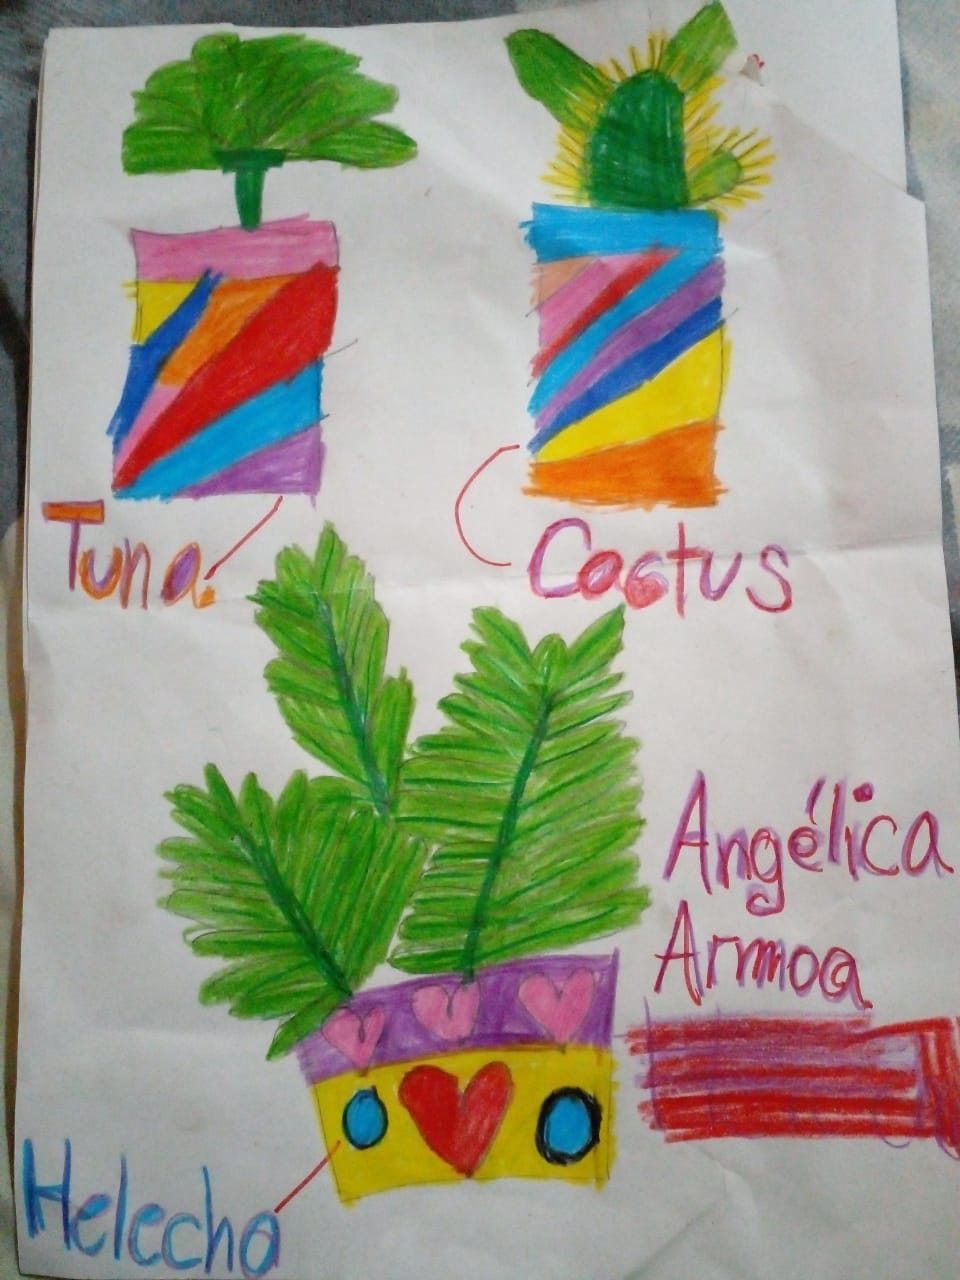 Tuna.
Cactus
Angélica
Armoa
Helecho